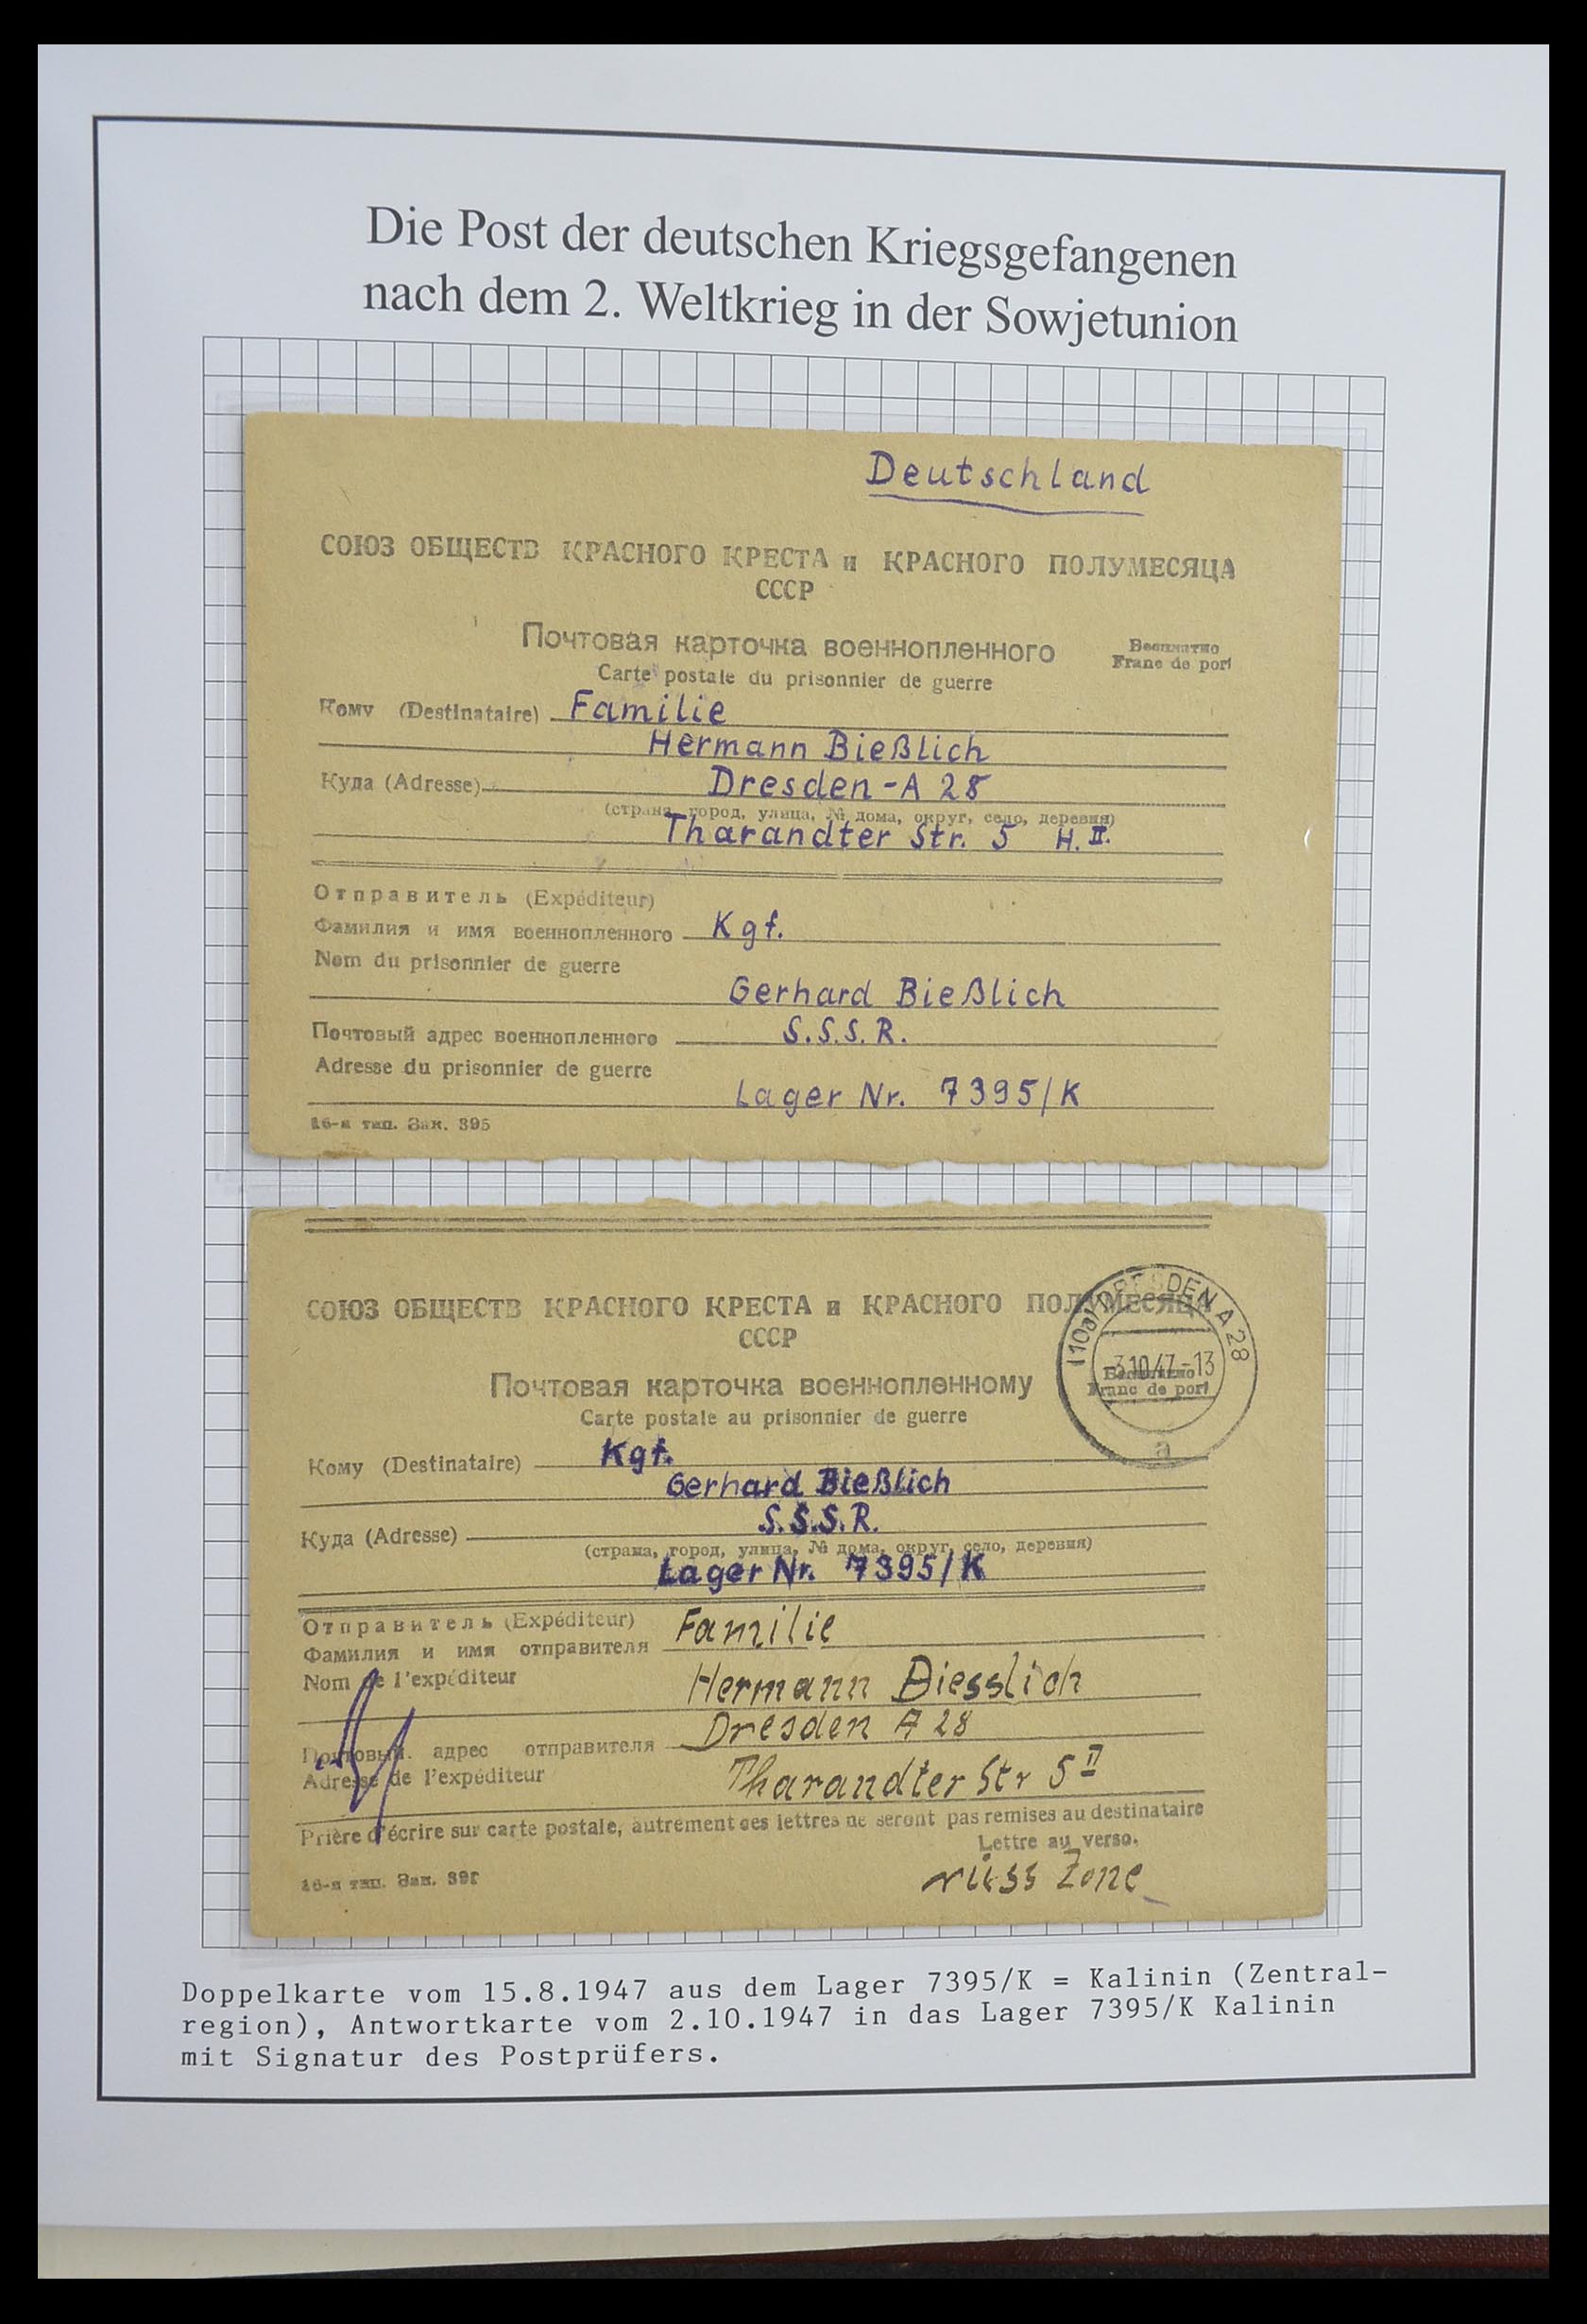 Die Post der deutschen Kriegsgefangenen
nach dem 2. Weltkrieg in der Sowjetunion
Deutschland
СОЮЗ ОБЩЕСТВ КРАСНОГО КРЕСТА и КРАСНОГО ПОЛУМЕСЯЦА
СССР
Почтовая карточка военнопленного
Бесплатно
Carte postale du prisonnier de guerre
Franc de port
Кому (Destinataire) Familie
Hermann Bießlich
Куда (Adresse) Dresden-A 28
(страна, город, улица, № дома, округ, село, деревня)
Tharandter Str. 5 H. II.
Отправитель (Expéditeur)
Фамилия и имя военнопленного Kgf.
Nom du prisonnier de guerre
Gerhard Bießlich
Почтовый адрес военнопленного S.S.S.R.
Adresse du prisonnier de guerre
Lager Nr. 7395/K
16-я тип. Зак. 395
СОЮЗ ОБЩЕСТВ КРАСНОГО КРЕСТА и КРАСНОГО ПОЛУМЕСЯЦА
СССР
(10a) DRESDEN A 28
3.10.47.-13
a
Почтовая карточка военнопленному
Бесплатно
Franc de port
Carte postale au prisonnier de guerre
Кому (Destinataire) Kgf.
Gerhard Bießlich
Куда (Adresse) S.S.S.R.
(страна, город, улица, № дома, округ, село, деревня)
Lager Nr. 7395/K
Отправитель (Expéditeur) Familie
Фамилия и имя отправителя
Nom de l'expéditeur Hermann Biesslich
Dresden A 28
Почтовый адрес отправителя
Adresse de l'expéditeur Tharandter Str 5 II
Prière d'écrire sur carte postale, autrement ces lettres ne seront pas remises au destinataire
Lettre au verso.
16-я тип. Зак. 395
rüss Zone
Doppelkarte vom 15.8.1947 aus dem Lager 7395/K = Kalinin (Zentral-
region), Antwortkarte vom 2.10.1947 in das Lager 7395/K Kalinin
mit Signatur des Postprüfers.